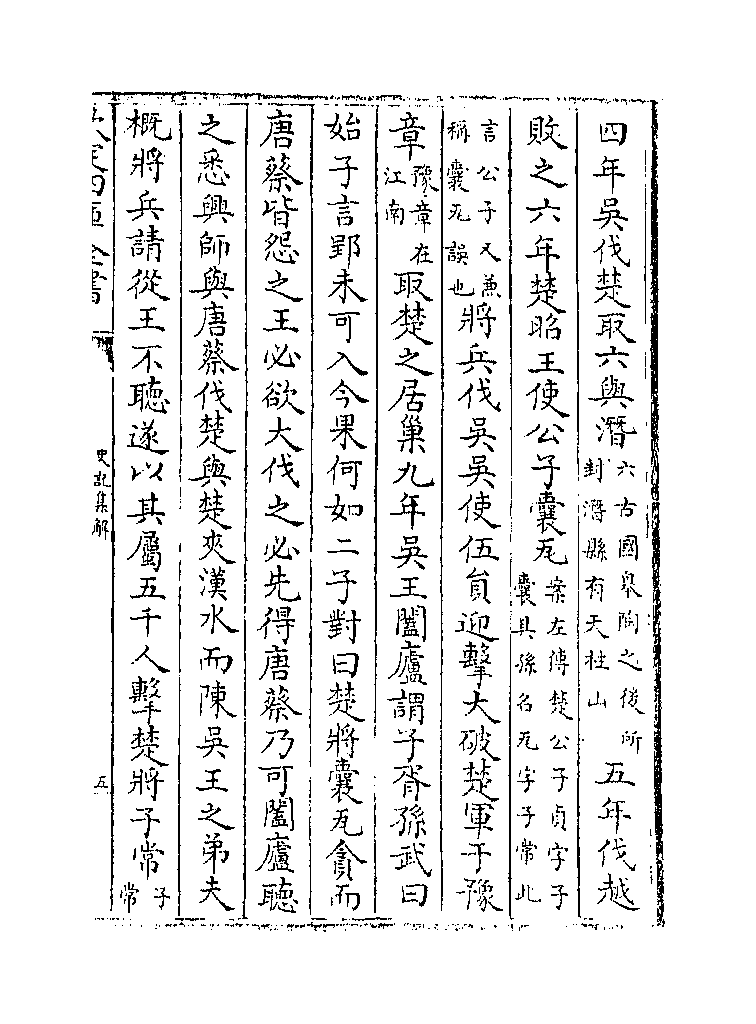 四年吳伐楚取六與潛六古國皋陶之後所封潛縣有天柱山五年伐越
敗之六年楚昭王使公子囊瓦案左傳楚公子貞字子囊其孫名瓦字子常此
言公子又兼稱囊瓦誤也將兵伐吳吳使伍員迎擊大破楚軍于豫
章豫章在江南取楚之居巢九年吳王闔廬謂子胥孫武曰
始子言郢未可入今果何如二子對曰楚將囊瓦貪而
唐蔡皆怨之王必欲大伐之必先得唐蔡乃可闔廬聽
之悉興師與唐蔡伐楚與楚夾漢水而陳吳王之弟夫
概將兵請從王不聽遂以其屬五千人擊楚將子常子常
欽定四庫全書
史記集解
五